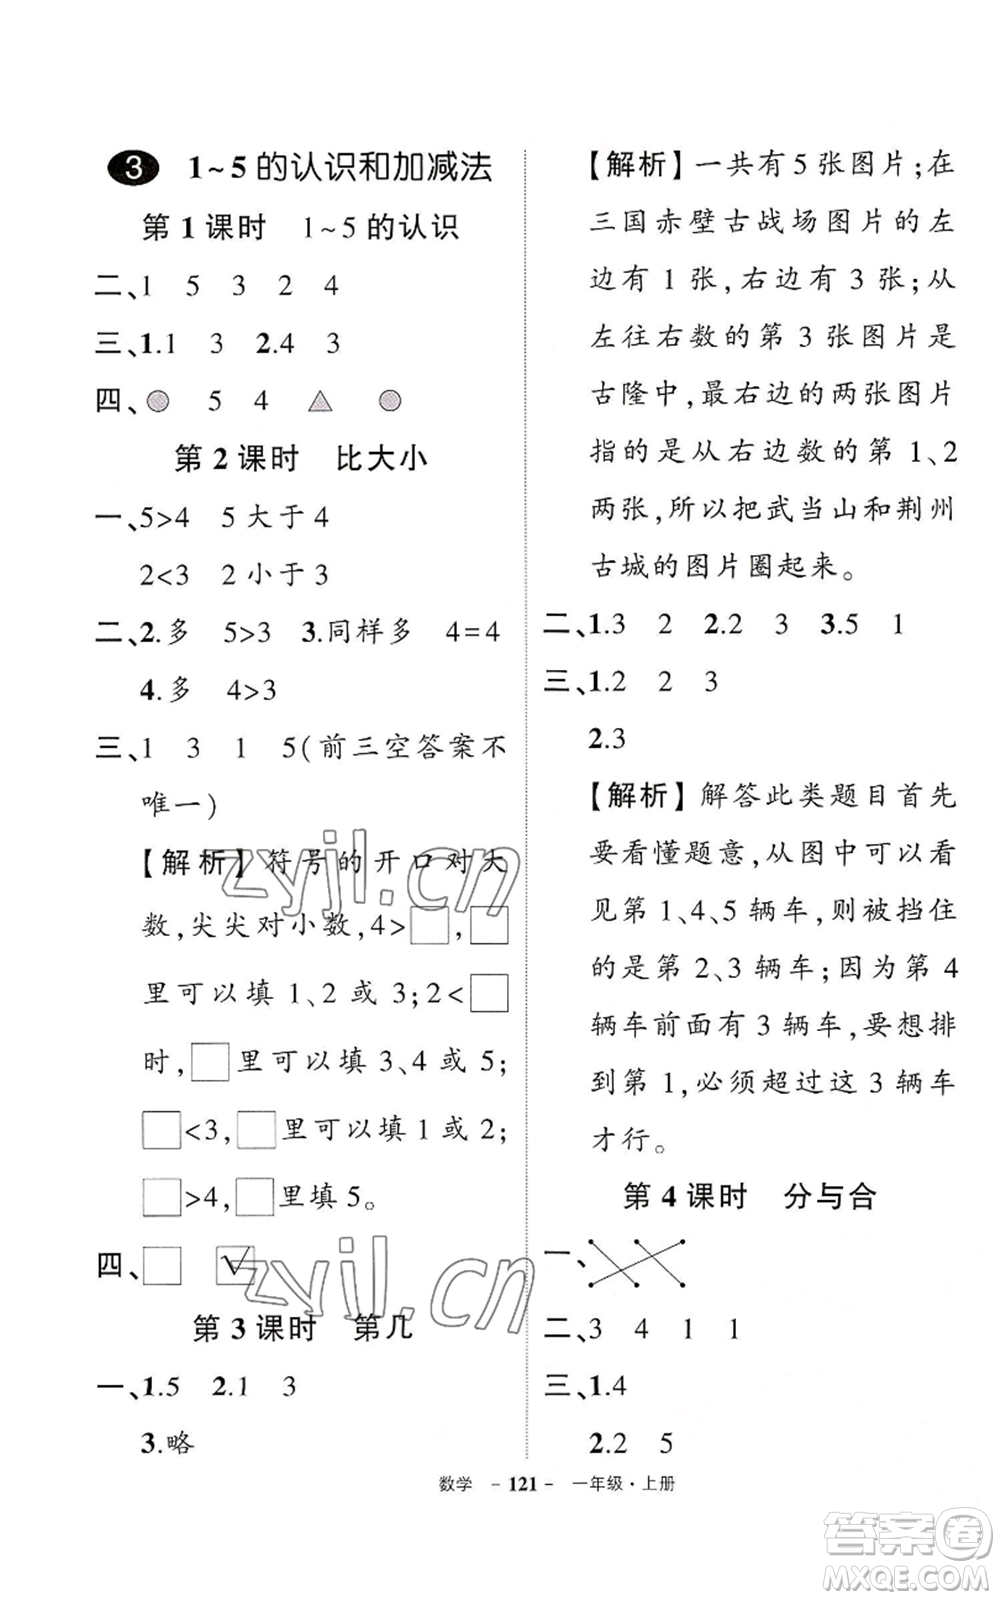 3 1~5的认识和加减法
第1课时 1~5的认识
二、1 5 3 2 4
三、1.1 3 2.4 3
四、 5 4
第2课时 比大小
一、5>4 5大于4
2<3 2小于3
二、2.多 5>3 3.同样多 4=4
4.多 4>3
三、1 3 1 5(前三空答案不
唯一)
【解析】符号的开口对大
数,尖尖对小数,4>□,□
里可以填1、2或3;2<□
时,□里可以填3、4或5;
□<3,□里可以填1或2;
□>4,□里填5。
四、□ √
第3课时 第几
一、1.5 2.1 3
3.略
【解析】一共有5张图片;在
三国赤壁古战场图片的左
边有1张,右边有3张;从
左往右数的第3张图片是
古隆中,最右边的两张图片
指的是从右边数的第1、2
两张,所以把武当山和荆州
古城的图片圈起来。
二、1.3 2 2.2 3 3.5 1
三、1.2 2 3
2.3
【解析】解答此类题目首先
要看懂题意,从图中可以看
见第1、4、5辆车,则被挡住
的是第2、3辆车;因为第4
辆车前面有3辆车,要想排
到第1,必须超过这3辆车
才行。
第4课时 分与合
一、
二、3 4 1 1
三、1.4
2.2 5
数学 - 121 - 一年级·上册
zyjl.cn
zyjl.cn
答案圈
MXQE.COM